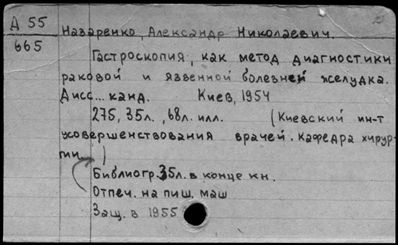 Д 55
665
Назаренко, Александр Николаевич.
Гастроскопия, как метод диагностики
раковой и язвенной болезней желудка.
Дисс... канд. Киев, 1954
275, 35л., 68л. илл. (Киевский ин-т
усовершенствования врачей. Кафедра хирур-
гии...)
Библиогр. 35л. в конце кн.
Отпеч. на пиш. маш
Защ. в 1955